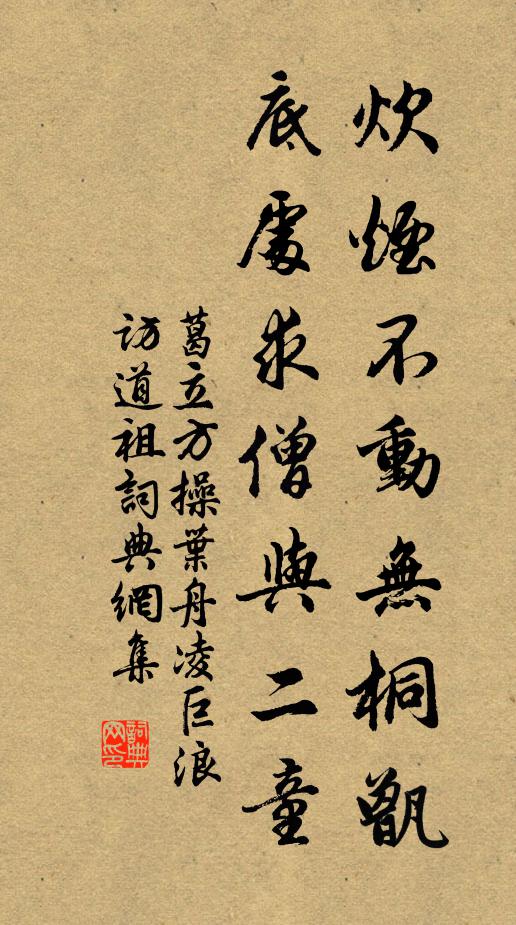 炊煙不動無桐甑
底處求僧與二童
葛立方操葉舟凌巨浪
訪道祖詞典網集
詞典网印